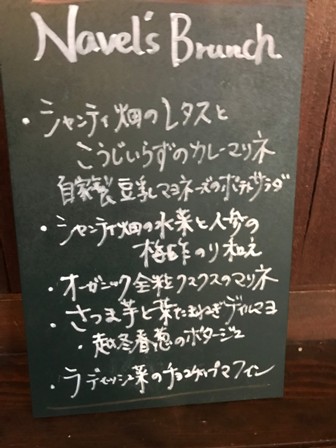 Navel's Brunch
・シャンティ畑のレタスと
こうじいらずのカレーマリネ
自家製豆乳マヨネーズのポテトサラダ
・シャンティ畑の水菜と人参の
梅酢のり和え
・オーガニック全粒クスクスのマリネ
・さつま芋と紫たまねぎディルマヨ
・越冬春葱のポタージュ
・ラディッシュ菜のチョコチップマフィン